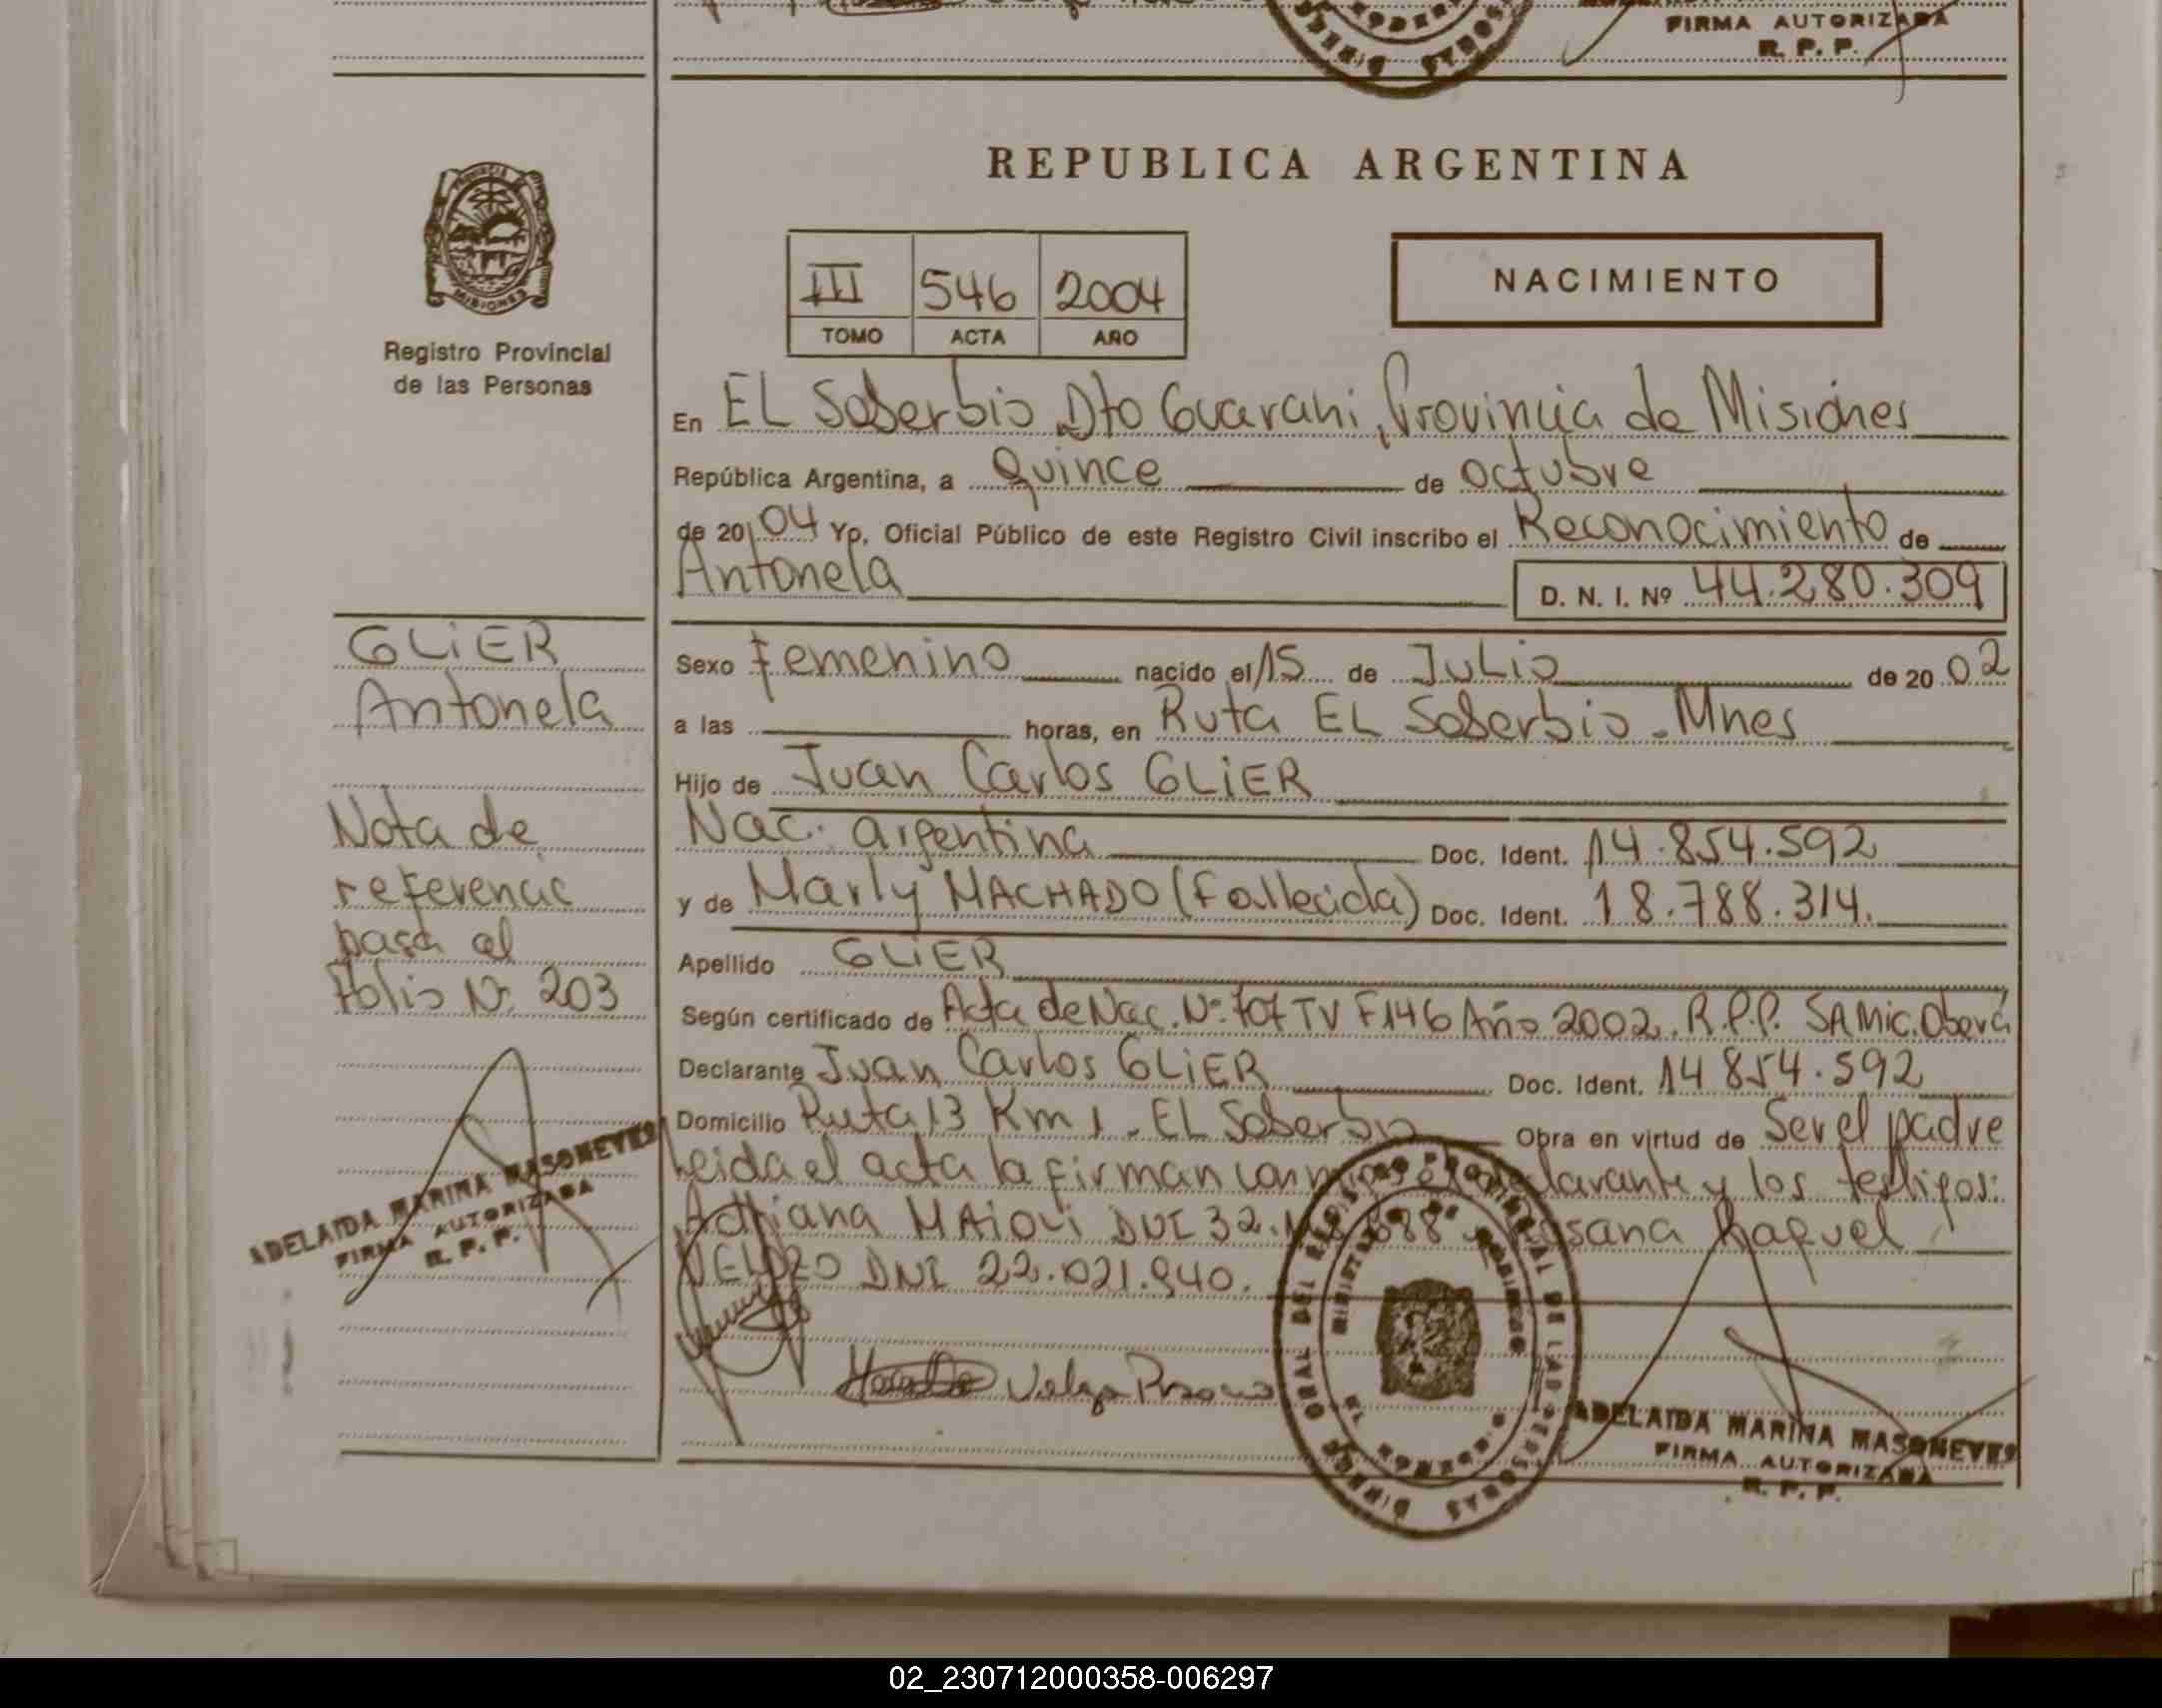 FIRMA AUTORIZADA
R. P. P.
REPUBLICA ARGENTINA
PROVINCIA DE
MISIONES
Registro Provincial
de las Personas
III 546 2004
TOMO ACTA AÑO
NACIMIENTO
En EL Soberbio Dto Guarani, Provincia de Misiones
República Argentina, a Quince de octubre
de 2004 Yo, Oficial Público de este Registro Civil inscribo el Reconocimiento de
Antonela
D. N. I. Nº 44.280.309
GLiER
Antonela
Nota de
referencia
pasa al
Folio Nº 203
ADELAIDA MARINA MASONEVES
FIRMA AUTORIZADA
R. P. P.
Sexo Femenino nacido el 15 de Julio de 2002
a las horas, en Ruta EL Soberbio - Mnes
Hijo de Juan Carlos GLiER
Nac. argentina Doc. Ident. 14.854.592
y de Marly MACHADO (Fallecida) Doc. Ident. 18.788.314.
Apellido GLiER
Según certificado de Acta de Nac. Nº 707 TV F146 Año 2002. R.P.P. SAMic. Oberá
Declarante Juan Carlos GLiER Doc. Ident. 14 854.592
Domicilio Ruta 13 Km 1 - EL Soberbio Obra en virtud de Ser el padre
Leida el acta la firman conmigo el declarante y los testigos:
Adriana MAiOLi DNI 32. Rosana Raquel
VELOZO DNI 22.021.940.
ADELAIDA MARINA MASONEVES
FIRMA AUTORIZADA
R. P. P.
02_230712000358-006297